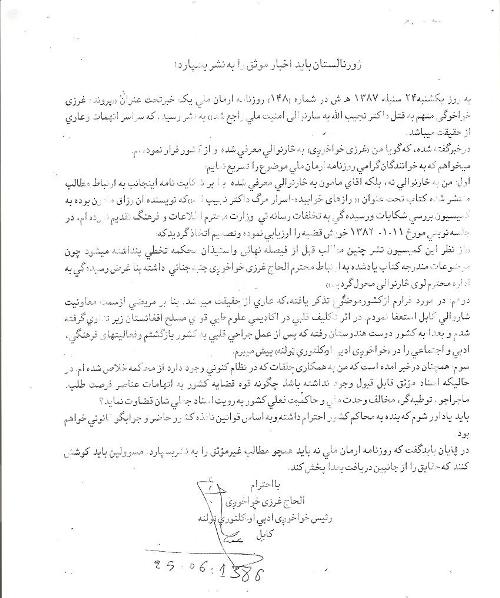 ژورنالستان باید اخبار موثق را به نشر بسپارد!
به روز یکشنبه ۲۴ سنبله ۱۳۸۷ هـ ش در شماره (۱۴۸) روزنامه ارمان ملي یک خبر تحت عنوان «پرونده غرزی
خواخوګی متهم به قتل داکتر نجیب الله به سارنوالی امنیت ملي راجع شد» به نشر رسید، که سراسر اتهامات و عاری
از حقیقت میباشد.
در خبر گفته شده، که گویا من (غرزی خواخوږی) به څارنوالی معرفي شده و از کشور فرار نموده ام.
میخواهم که به خوانندگان گرامي روزنامه ارمان ملي موضوع را تشریح نمایم:
اول: من به څارنوالی نه، بلکه اقای مامون به څارنوالی معرفي شده و بنا بر شکایت نامه اینجانب به ارتباط مطالب
منتشر شده کتاب تحت عنوان «رازهای خوابیده- اسرار مرگ داکتر نجیب الله» که نویسنده آن رزاق مامون بوده به
کمیسیون بررسی شکایات و رسیدگی به تخلفات رسانه ئي وزارت محترم اطلاعات و فرهنگ تقدیم نموده ام، در
جلسه نوبتي مورخ ۱۱-۰۱-۱۳۸۲ خویش قضیه را ارزیابی نموده و تصمیم اتخاذ گردید که:
«از نظر این کمیسیون نشر چنین مطالب قبل از فیصله نهائي واستیذان محکمه تخطي پنداشته میشود چون
موضوعات مندرجه کتاب یاد شده به ارتباط محترم الحاج غرزی خواخوږی جنبه جنائي داشته بنا غرض رسیدگی به
اداره محترم لوی څارنوالي محول گردید.»
دوم: در مورد فرارم از کشور موضوعی تذکر یافته، که عاري از حقیقت میباشد. بنا بر مریضی از سمت معاونیت
شاروالی کابل استعفا نمودم. در اثر تکلیف قلبي در اکادیمی علوم طبي قوای مسلح افغانستان زیر تداوی گرفته
شدم و بعدا به کشور دوست هندوستان رفته که پس از عمل جراحي قلبي به کشور بازگشتم وفعالیتهای فرهنگي،
ادبي و اجتماعي را در (خواخوږی ادبي او کلتوري ټولنه) پیش میبرم.
سوم: همچنان در خبر آمده است که من به همکاری حلقات که در نظام کنوني وجود دارد از محکمه خلاص شده ام. در
حالیکه اسناد موثق قابل قبول وجود نداشته باشد چگونه قوه قضایه کشور به اتهامات عناصر فرصت طلب،
ماجراجو، توطیه گر، مخالف وحدت ملي و حاکمیت فعلي کشور به رویت اسناد جعلي شان قضاوت نماید؟
باید یاد آور شوم که بنده به محاکم کشور احترام داشته و به اساس قوانین نافذه کشور حاضر و جوابگو قانوني خواهم
بود
در پایان باید گفت که روزنامه ارمان ملي نه باید همچو مطالب غیر موثق را به نشر بسپارد. مسوولین باید کوشش
کنند که حقایق را از جانبین دریافت بعدا پخش کند.
با احترام
الحاج غرزی خواخوږی
رئیس خواخوږی ادبي او کلتوري ټولنه
کابل
25.06.1386